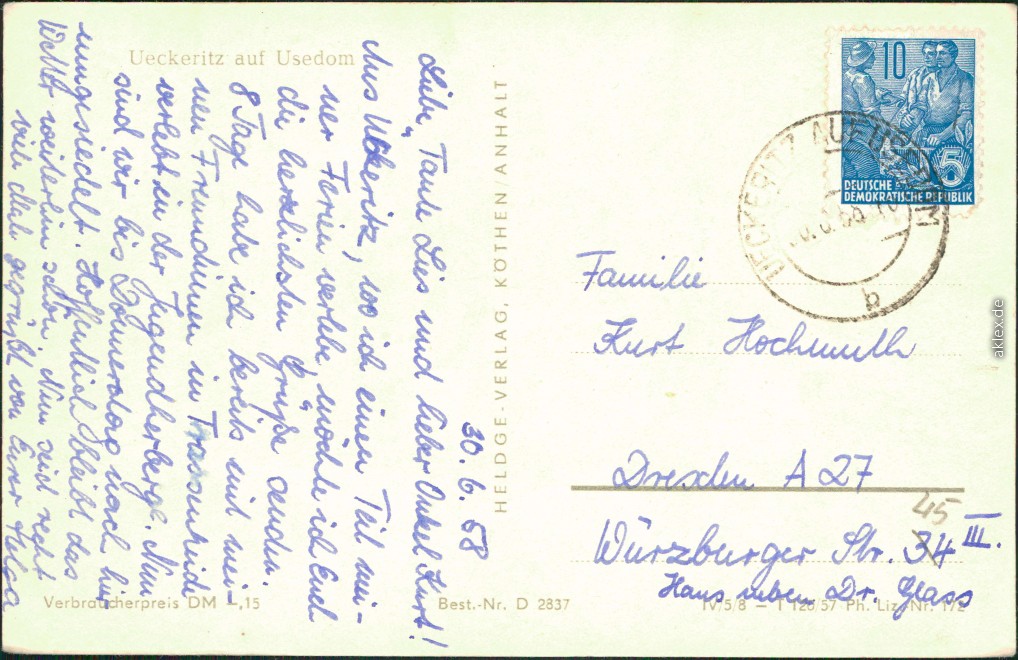 Ueckeritz auf Usedom
30.6.58
Liebe Tante Lies und lieber Onkel Kurt!
Aus Ückeritz, wo ich einen Teil mei-
ner Ferien verlebe, möchte ich Euch
die herzlichsten Grüße senden.
8 Tage habe ich bereits mit mei-
nen Freundinnen in Trassenheide
verlebt in der Jugendherberge. Nun
sind wir bis Donnerstag nach hier
umgesiedelt. Hoffentlich bleibt das
Wetter weiterhin schön. Nun seid recht
viele mal gegrüßt von Eurer Helga
Verbraucherpreis DM -,15
Best.-Nr. D 2837
HELDGE-VERLAG, KÖTHEN/ANHALT
10
5
DEUTSCHE
DEMOKRATISCHE REPUBLIK
UECKERITZ AUF USEDOM
b
Familie
Kurt Hochmuth
Dresden A 27
45
Würzburger Str. 34 III.
Haus neben Dr. Glass
IV/5/8 – 1 120/57 Ph. Liz.-Nr. 1/2
aklex.de